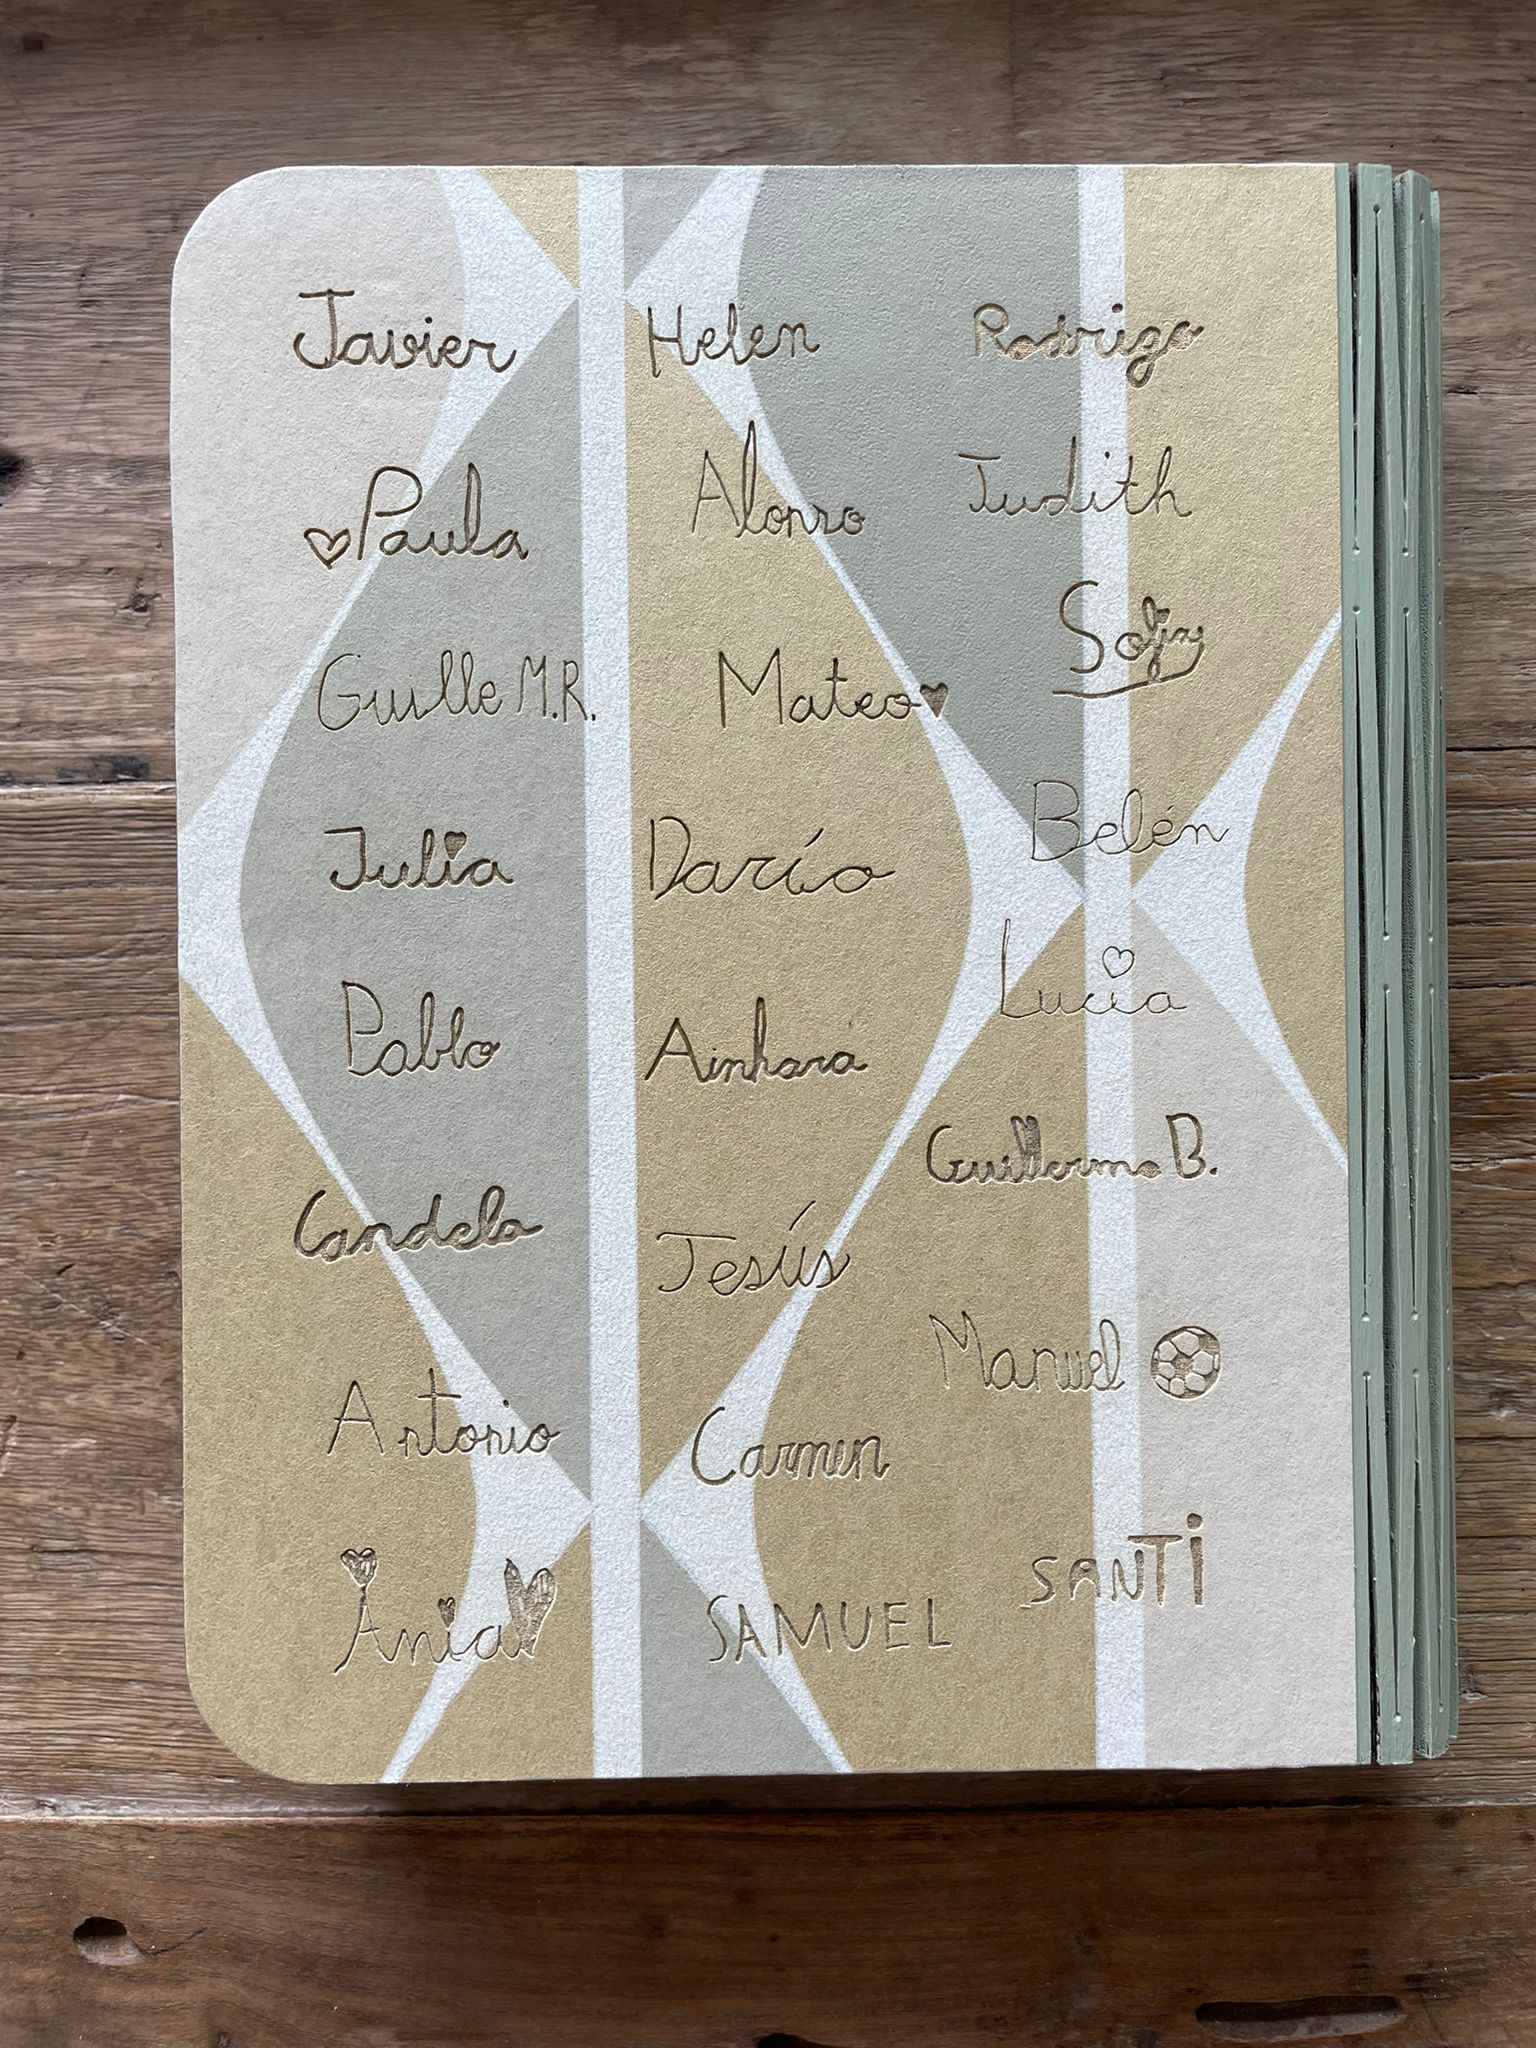 Javier
Helen
Rodrigo
Paula
Alonso
Judith
Guille M.R.
Mateo
Sofía
Julia
Darío
Belén
Pablo
Ainhara
Lucía
Candela
Jesús
Guillermo B.
Antonio
Carmen
Manuel
Ania
SAMUEL
SANTI